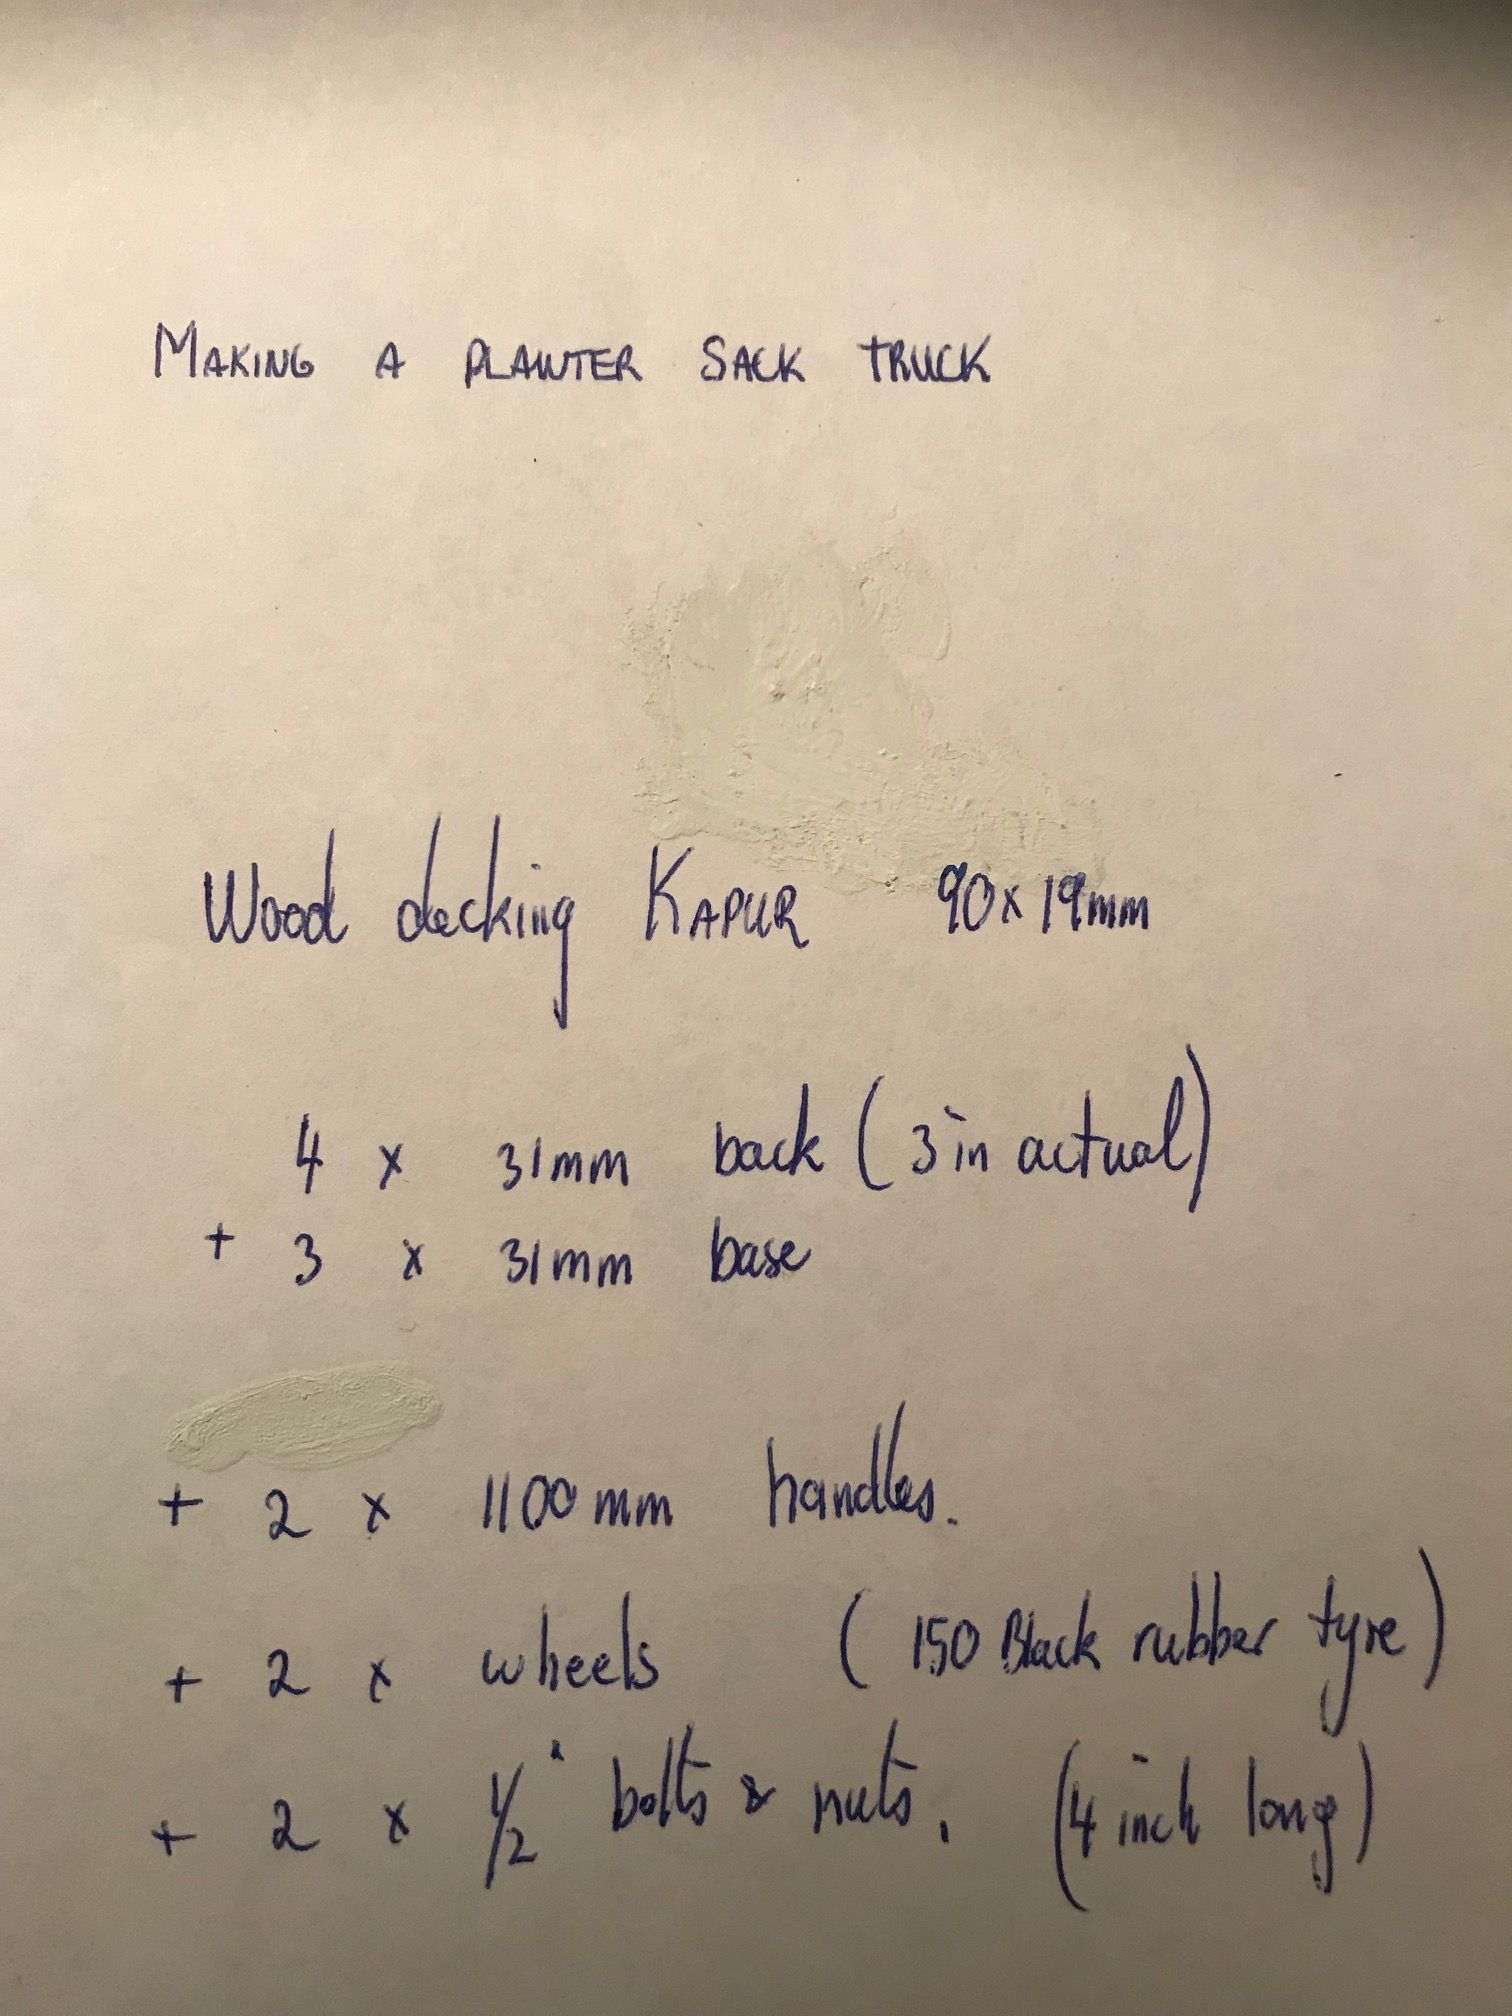 MAKING A PLANTER SACK TRUCK
Wood decking KAPUR 90x19mm
4 x 31mm back (3 in actual)
+ 3 x 31mm base
+ 2 x 1100mm handles.
+ 2 x wheels (150 Black rubber tyre)
+ 2 x 1/2" bolts & nuts. (4 inch long)